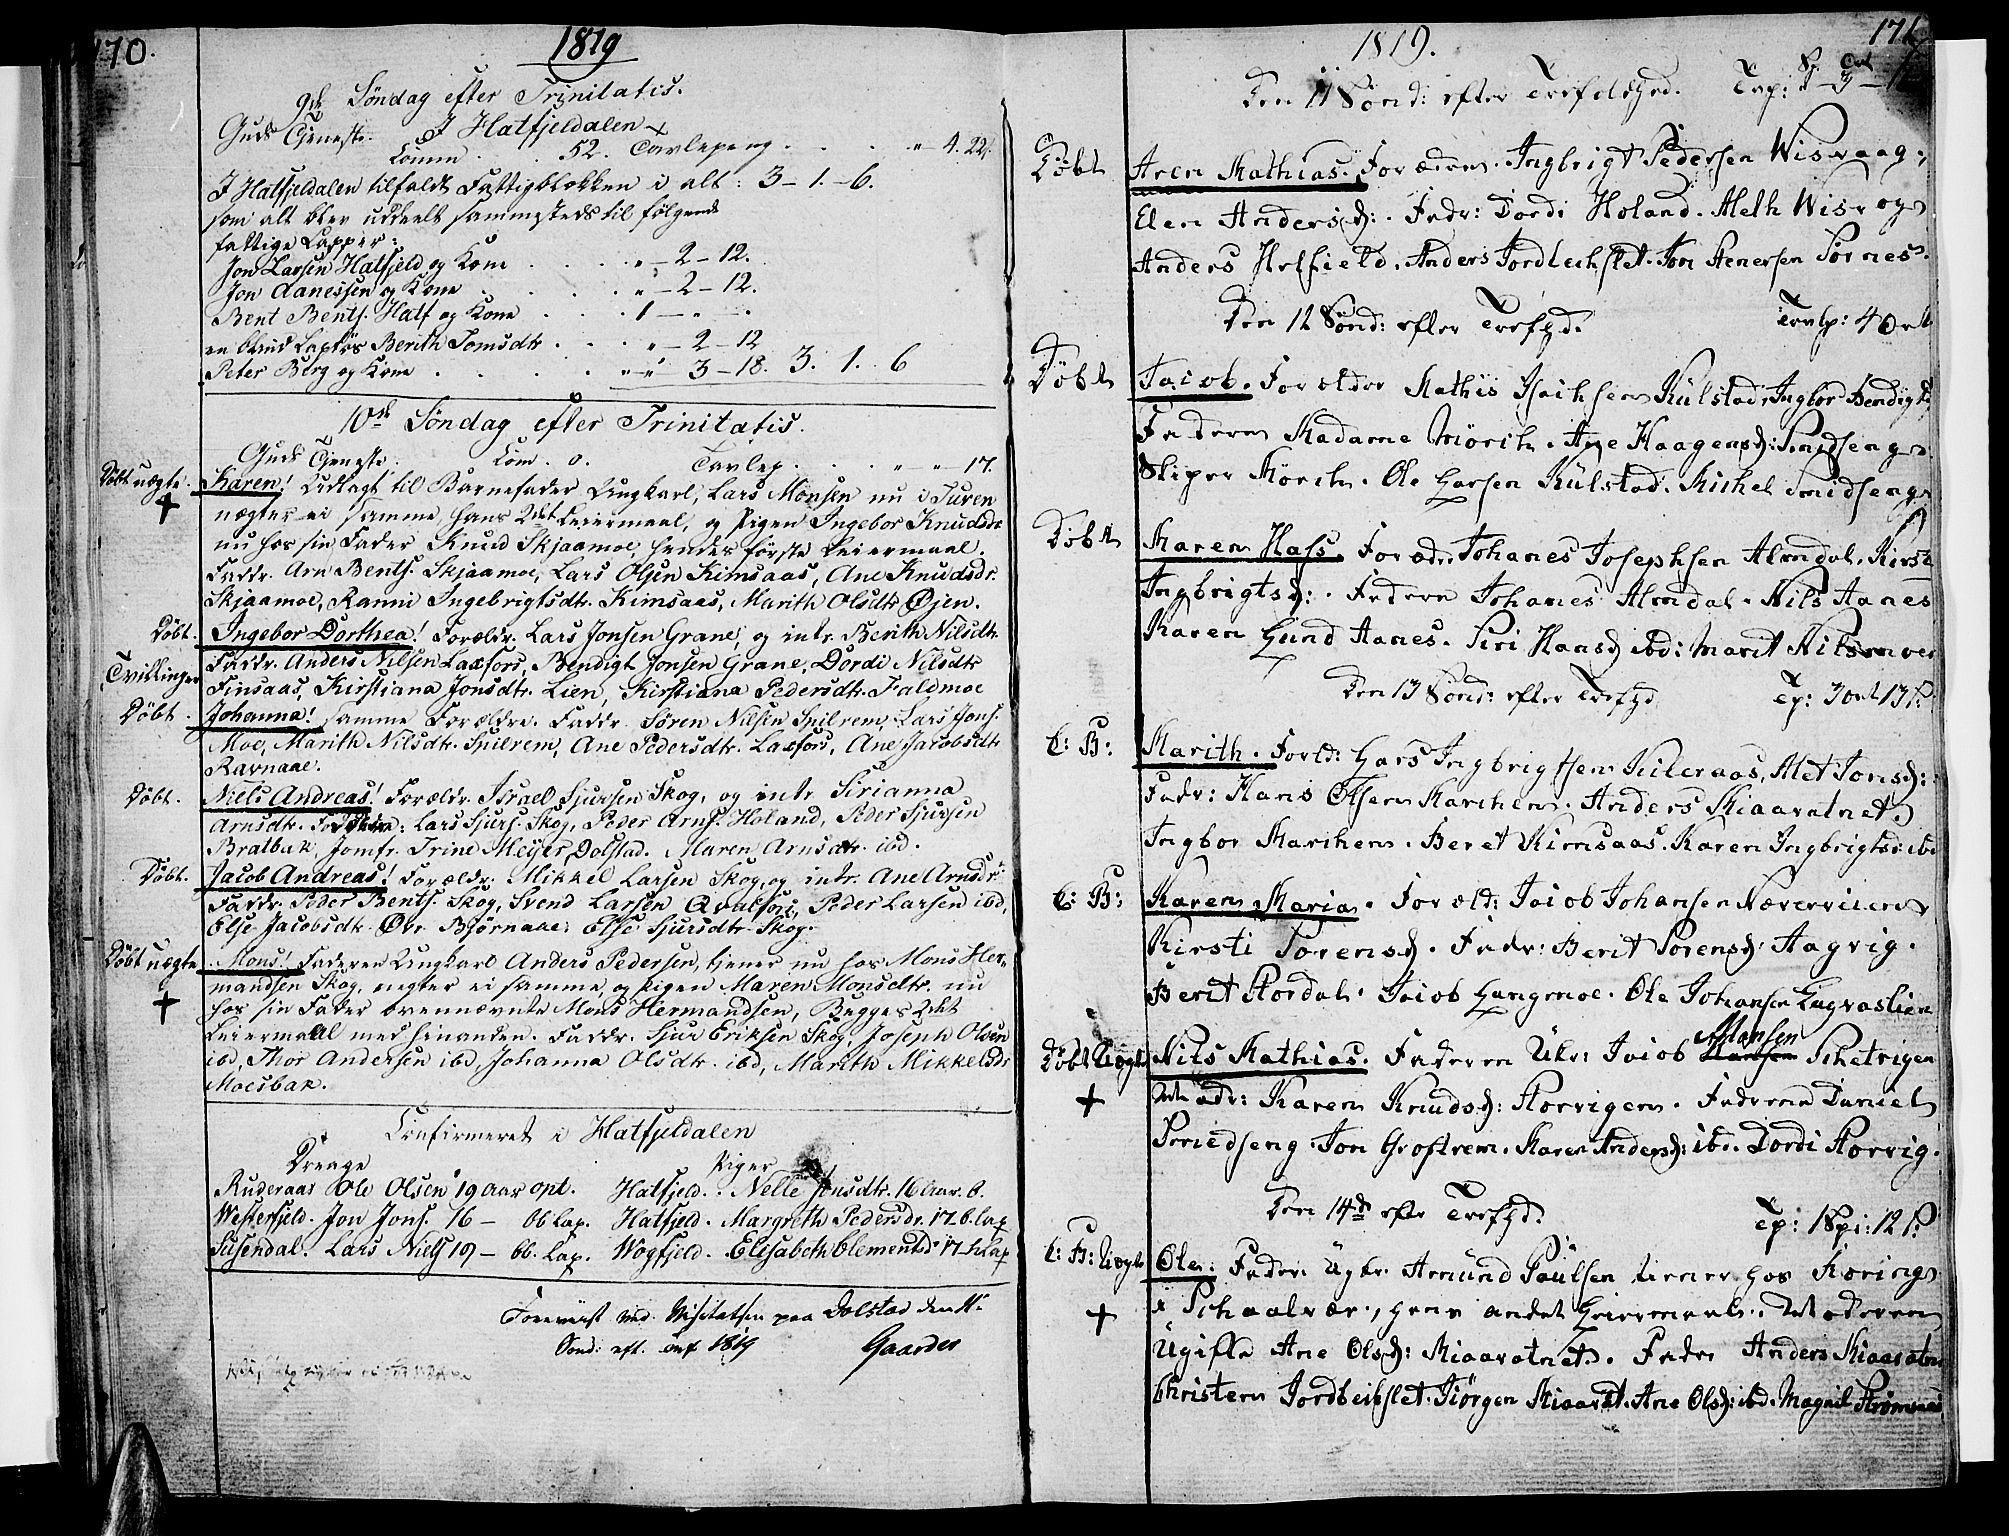 170.
1819
9de Søndag efter Trinitatis.
Guds Tjeneste. I Hatfjeldalen
Comm . . 52. Tavlepeng . . . . " 4. 22.
I Hatfjeldalen tilfaldt Fattigblokken i alt: 3 - 1. - 6.
som alt blev uddeelt sammesteds til følgende
fattige Lapper:
Jon Larsen Hatfjeld og Kone . . . . " - 2 - 12.
Jon Aanessen og Kone . . . . " - 2 - 12.
Bent Bents. Hatf og Kone . . . 1 - " .
en blind Berith Tomsdtr . . . " - 2 - 12
Peter Berg og Kone . . . . " " 3 - 18. 3. 1. 6
10de Søndag efter Trinitatis.
Guds Tjeneste. Com. 0. Tavlep . . . " " 17.
Døbt uægte. Karen! Udlagt til Barnefader Ungkarl, Lars Monsen nu i Turen
+ nægter ei samme, hans 2det Leiermaal, og Pigen Ingebor Knudsdr
nu hos sin Fader Knud Skjaamoe, hendes første Leiermaal.
Faddr. Arn Bents. Skjaamoe, Lars Olsen Kimsaas, Ane Knudsdr.
Skjaamoe, Ranni Ingebrigtsdtr. Kimsaas, Marith Olsdtr Øjen.
Døbt. Ingebor Dorthea! Forældr. Lars Jonsen Grane, og intr. Berith Nilsdtr.
Tvillinger Faddr. Anders Nilsen Laxfors, Bendigt Jonsen Grane, Dordi Nilsdtr
Finsaas, Kirstiana Jonsdtr. Lien, Kirstiana Pedersdtr. Faldmoe
Døbt. Johanna! samme Forældre. Faddr. Søren Nilsen Spilrem, Lars Jons.
Moe, Marith Nilsdtr. Spilrem, Ane Pedersdtr. Laxfors, Ane Jacobsdtr
Ravnaae.
Døbt. Niels Andreas! Forældr. Israel Sjursen Skog, og intr. Sirianna
Arnsdtr. Faddere: Lars Sjurs. Skog, Peder Arns. Holand, Peder Sjursen
Bratbak, Jomfr. Trine Meyer Dolstad. Maren Arnsdtr. ibd.
Døbt. Jacob Andreas! Forældr. Mikkel Larsen Skog, og intr. Ane Arnsdr.
Faddr. Peder Bents. Skog, Svend Larsen Qvalfors, Peder Larsen ibd,
Else Jacobsdtr. Øvr Bjørnaae; Else Sjursdtr. Skog.
Døbt uægte Mons! Faderen Ungkarl Anders Pedersen, tjener nu hos Mons Her-
+ mandsen Skog, negter ei samme, og Pigen Maren Monsdtr. nu
hos sin Fader ovennævnte Mons Hermandsen, Begges 2det
Leiermaal med hinanden. Faddr. Sjur Eriksen Skog, Joseph Olsen
ibd, Thor Andersen ibd, Johanna Olsdtr. ibd, Marith Mikkelsdr
Moesbak.
Confirmeret i Hatfjeldalen
Drenge Piger
Ruderaas Ole Olsen 19 Aar opt. Hatfjeld. Nelle Jonsdtr. 16 Aar. b.
Westerfjeld. Jon Jons. 16 - ob Lap. Hatfjeld. Margreth Pedersdr. 17. b. Lap
Susendal. Lars Niels 19 - bb. Lap. Wogfjeld. Elisabeth Clementsd. 17 Lap
Foreviist ved Visitatsen paa Dolstad den 11te
Sond: eft. 1819 Gaarder
171
1819.
Den 11 Sönd: efter Trefoldhed. Tavp: 3
Döbt Aren Mathias. Foræderne Ingbrigt Pedersen Wisvaag,
Elen Andersd:. Fadr: Dordi Holand. Aleth Wisvog
Anders Helfield. Anders Jordbechslet. Jon Stenersen Sörnes.
Den 12 Sönd: efter Trefhd. Tavlp: 4 Ort
Döbt Jacob. Forældre Mathis Isachsen Kulstad, Ingbor Bendigtsd
Faderne Madame Mörch. Ane Haagensd: Smedseng.
Skiper Mörch. Ole Larsen Kulstad. Michel Smidseng.
Döbt Maren Hass. Foræd. Johanes Josephsen Almdal. Kirst
Ingbrigtsd:. Fadere Johanes Almdal. Nils Aanes
Karen Lund Aanes. Siri Hansd ibd: Marit Nils
Den 13 Sönd: efter Trefhd Tp: 3 ort 13 s.
C: B: Marith. Forld: Lars Ingbrigtsen Kileraas, Alet Jonsd:
Fadr: Hans Olsen Marchen. Anders Kiaaratnet.
Ingbor Marchen. Beret Kimsaas. Karen Ingbrigtsd: ibd
C: B: Karen Maria. Foræld: Jacob Johansen Næverviiern
Kirsti Sorensd. Fadr: Berit Sorensd: Aagvig.
Berit Stordal. Jacob Langmoe. Ole Johansen Lugvaslien
Döbt Uægte Nils Mathias. Faderen Ukr: Jacob Hansen Schetrigen
+ Modr: Karen Knudsd: Storvigen. Faderne Daniel
Smedseng. Jon Groftrem. Maren Andersd: ibd. Dordi Storvig.
Den 14de efter Trefhd. Tp: 1 Spi: 12 s.
C: B: Uægte Ole: Fader Ugkr. Amund Paulsen tiener hos Koring
+ i Schaalvær, hans andet Leiermaal. Moderen
Ugifte Ane Olsd: Kiaaratnet. Fadr Anders Kiaaratn
Christen Jordbechslet. Jörgen Kiaarat. Ane Olsd: ibd. Magnil Strömsaas